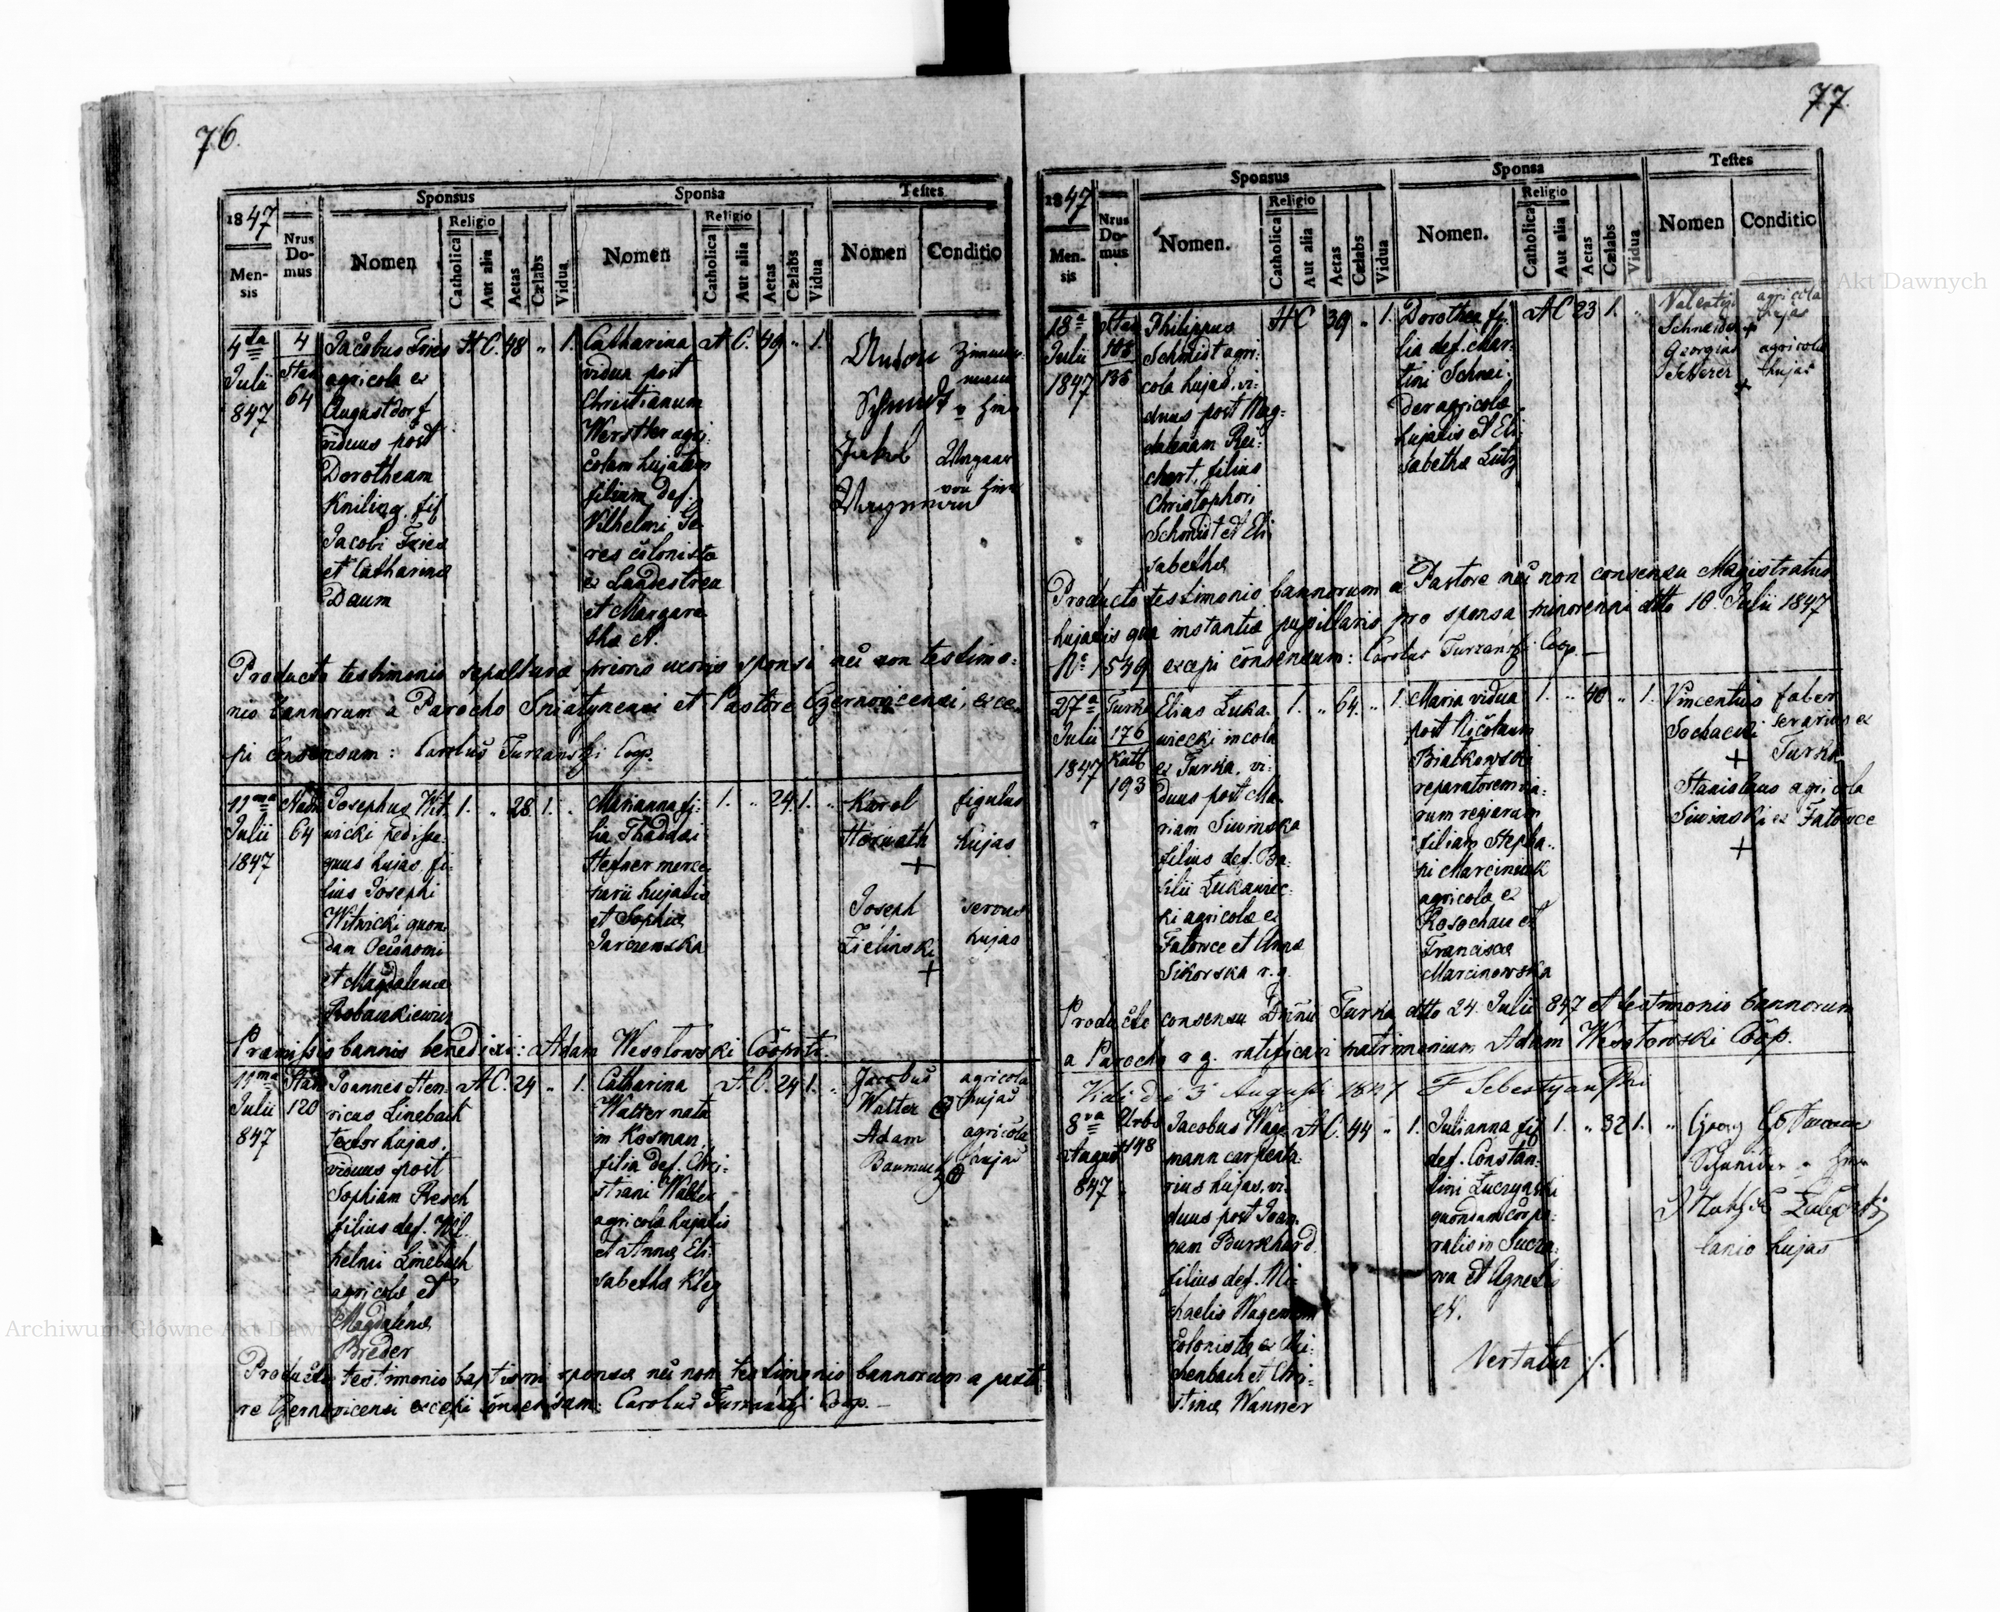 76.
1847
Mensis
Nrus Domus
Sponsus
Nomen
Religio
Catholica
Aut alia
Aetas
Cælabs
Vidua
Sponsa
Nomen
Religio
Catholica
Aut alia
Aetas
Cælabs
Vidua
Testes
Nomen
Conditio
4da
Julii
847
4
Stan
64
Jacobus Fries
agricola ex
Augustdorf
viduus post
Dorotheam
Kniling. fil
Jacobi Fries
et Catharinæ
Daum
A C. 48 „ 1.
Catharina
vidua post
Christianum
Werstler agri:
colam hujatem
filiam def.
Vilhelmi Se
res colonistæ
ex Landestreu
et Margare
thæ N.
A C. 49 „ 1.
Anton
Schmidt
Jakob
Zimmer:
mann
v hier
Wagner
von hier
Producto testimonio sepulturæ prioris uxoris sponsi nec non testimo:
nio bannorum a Parocho Sniatynensi et Pastore Czernovicensi, exce
pi consensum: Carolus Turzanski Coop.
11ma
Julii
1847
64
Josephus Wit.
wicki pedisse:
quus hujas, fi:
lius Josephi
Witwicki quon
dam Oeconomi
et Magdalenæ
1. „ 28. 1. „
Marianna fi:
lia Thaddæi
Hefner merce
narii hujatis
et Sophiæ
1. „ 24. 1. „
Karol
Horwath
+
figulus
hujas
Joseph
Zielinski
+
servus
hujas
Præmissis bannis benedixi: Adam Wesolowski Cooprtr.
11ma
Julii
847
Stan
120
Joannes Hen
ricus Linebach
textor hujas,
viduus post
Sophiam Resch
filius def. Wil
helmi Linebach
agricolæ et
Magdalenæ
Breder
A C. 24 „ 1.
Catharina
Walter nata
in Kosman,
filia def. Chri
stiani Walter
agricolæ hujatis
et Annæ Eli:
sabethæ Kley
A. C. 24 1. „
Jacobus
Walter
agricola
hujas
Adam
agricola
hujas
Producto testimonio baptismi sponsæ nec non testimonio bannorum a pasto
re Czernovicensi excepi consensum: Carolus Turzanski Coop. —
77.
1847
Mensis
Nrus Domus
Sponsus
Nomen.
Religio
Catholica
Aut alia
Aetas
Cælabs
Vidua
Sponsa
Nomen.
Religio
Catholica
Aut alia
Aetas
Cælabs
Vidua
Testes
Nomen
Conditio
18a
Julii
1847
135
Philippus
Schmidt agri:
cola hujas, vi:
duus post Mag:
dalenam Rei:
chert, filius
Christophori
Schmidt et Eli
sabethæ
A C 39 „ 1.
Dorothea fi:
lia def. Mar:
tini Schnei:
der agricolæ
hujatis et Eli
sabethæ Lutz
A C 23 1. „
Valentin
Schneider +
agricola
hujas
Georgius
+
agricola
hujas
Producto testimonio bannorum a Pastore nec non consensu Magistratus
hujatis qua instantiæ pupillaris pro sponsa minorenni dtto 10. Julii 1847
No 1549 excepi consensum: Carolus Turzanski Coop. —
27a
Julii
1847
Turka
176
Kutb
193
Elias Łuka.
wiecki incola
ex Turka, vi:
duus post Ma:
riam Siwinska
filius def. Ba:
silii Łukawiec:
ki agricolæ ex
Fatowce et Annæ
Sikorska r. g.
1. „ 64. „ 1.
Maria vidua
post Nicolaum
Białkowski
reparatorem via:
rum regiarum
filiam Stepha:
ni Marciniuk
agricolæ ex
Rosochacz et
Franciscæ
Marcinowska
1. „ 40 „ 1.
Vincentius
Sochacki
+
faber
ferarius ex
Turka
Stanislaus
Siwinski
+
agricola
ex Fatowce
Producto consensu Dnii Turka dtto 24. Julii 847 et testimonio bannorum
a Parocho r. g. ratificavi matrimonium Adam Wesołowski Coop.
Vidi die 3 Augusti 1847 F Sebestyanski
8va
August
847
Urbs
448
Jacobus Wage
mann carpenta:
rius hujas, vi:
duus post Joan:
nam Burkhard.
filius def. Mi:
chaelis Wagemann
colonistæ ex Rei:
chenbach et Chri:
stinæ Wanner
A C. 44 „ 1.
Julianna fil
def. Constan:
tini Łuczynski
quondam corpo:
ralis in Sucza:
wa et Agnetis
N.
1. „ 32 1. „
Georg
Schneider
lanio hujas
Vertatur ./.
Archiwum Główne Akt Dawnych
Archiwum Główne Akt Dawnych